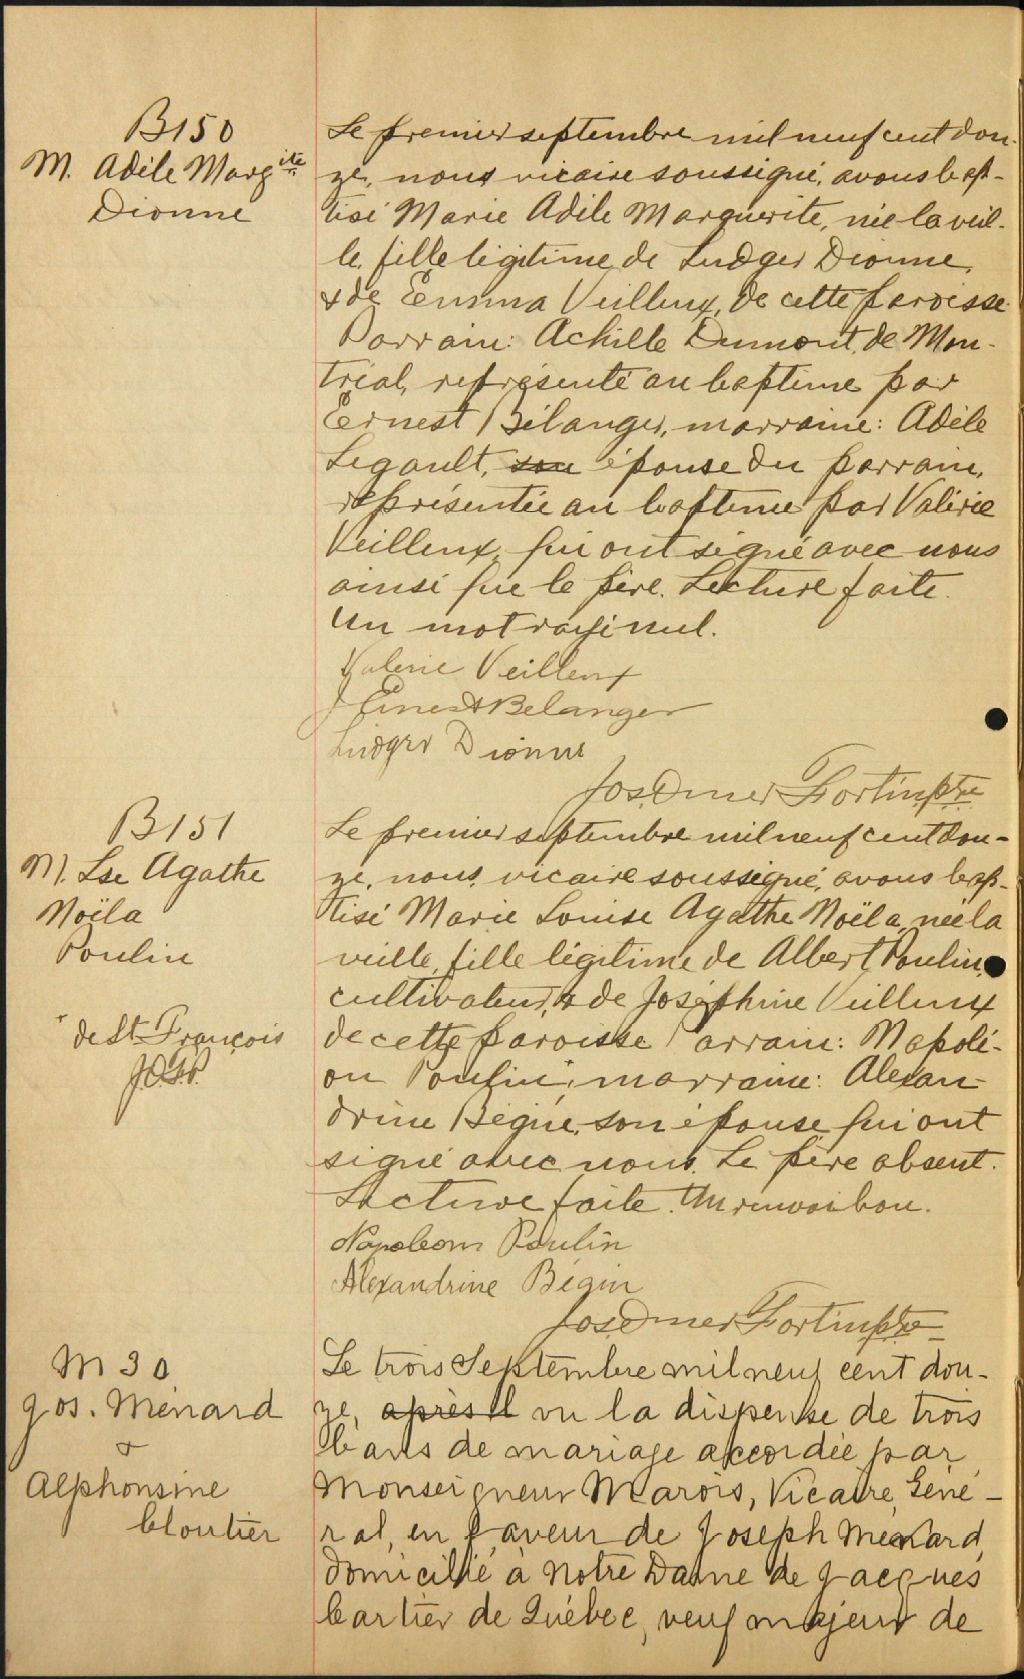 B150
M. Adèle Marg.ite
Dionne
Le premier septembre mil neuf cent dou-
ze, nous vicaire soussigné, avons bap-
tisé Marie Adèle Marguerite, née la veil-
le, fille légitime de Ludger Dionne,
& de Emma Veilleux, de cette paroisse.
Parrain: Achille Dumont, de Mon-
tréal, représenté au baptême par
Ernest Bélanger, marraine: Adèle
Legault, son épouse du parrain,
représentée au baptême par Valérie
Veilleux, qui ont signé avec nous
ainsi que le père. Lecture faite.
Un mot rayé nul.
Valerie Veilleux
J Ernest Belanger
Ludger Dionne
Jos. Omer Fortin, ptre
B151
M. Lse Agathe
Noëla
Poulin
Le premier septembre mil neuf cent dou-
ze, nous, vicaire soussigné, avons bap-
tisé Marie Louise Agathe Noëla, née la
veille, fille légitime de Albert Poulin,
cultivateur, & de Joséphine Veilleux
de cette paroisse Parrain: Napolé-
on Poulin, marraine: Alexan-
drine Bégin, son épouse qui ont
signé avec nous. Le père absent.
Lecture faite. Un renvoi bon.
de St-François
J.O.F.P.
Napoleon Poulin
Alexandrine Bégin
Jos. Omer Fortin ptre
M 30
Jos. Ménard
&
Alphonsine
Cloutier
Le trois Septembre mil neuf cent dou-
ze, après il vu la dispense de trois
bans de mariage accordée par
Monseigneur Marois, Vicaire Géné-
ral, en faveur de Joseph Ménard,
domicilié à Notre Dame de Jacques
Cartier de Québec, veuf majeur de